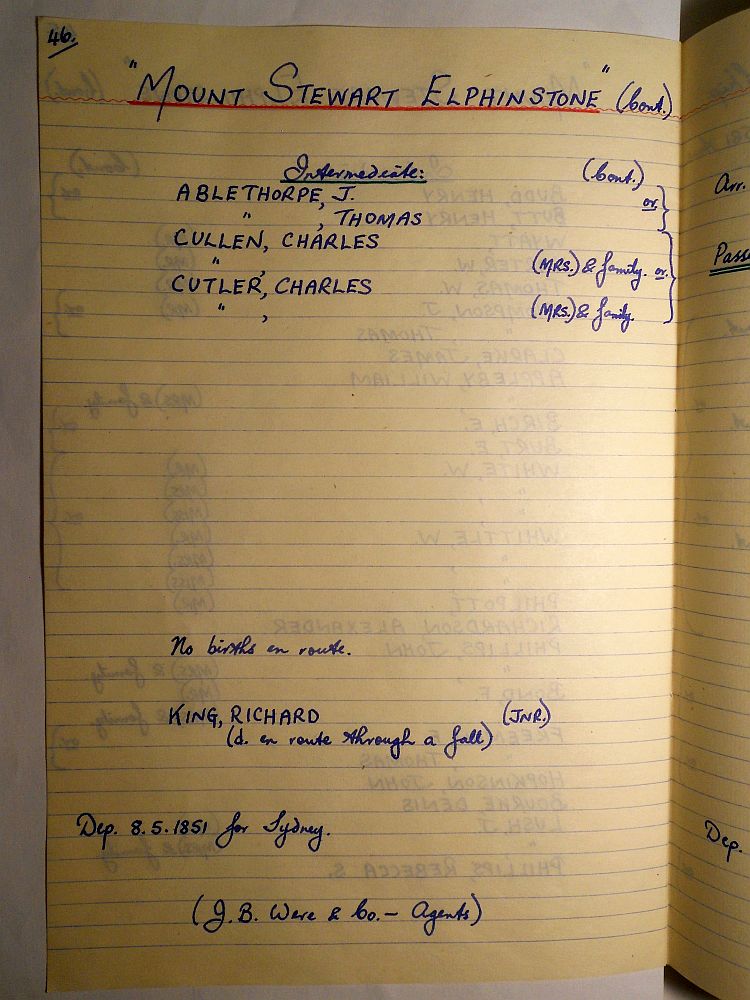 46.
"MOUNT STEWART ELPHINSTONE" (Cont.)
Intermediate: (Cont.)
ABLETHORPE, J. or
" , THOMAS
CULLEN, CHARLES
" , (MRS.) & family. or
CUTLER, CHARLES
" , (MRS.) & family.
No births en route.
KING, RICHARD (JNR.)
(d. en route through a fall)
Dep. 8.5.1851 for Sydney.
(J.B. Were & Co. - Agents)
Arr.
Dep.